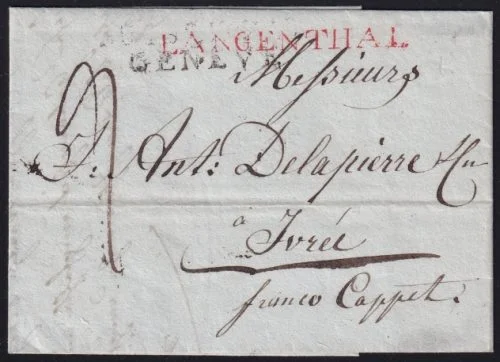 LANGENTHAL
GENEVE
Messieurs
J. Ant: Delapierre & Cn
à
Ivrée
franco Coppet.